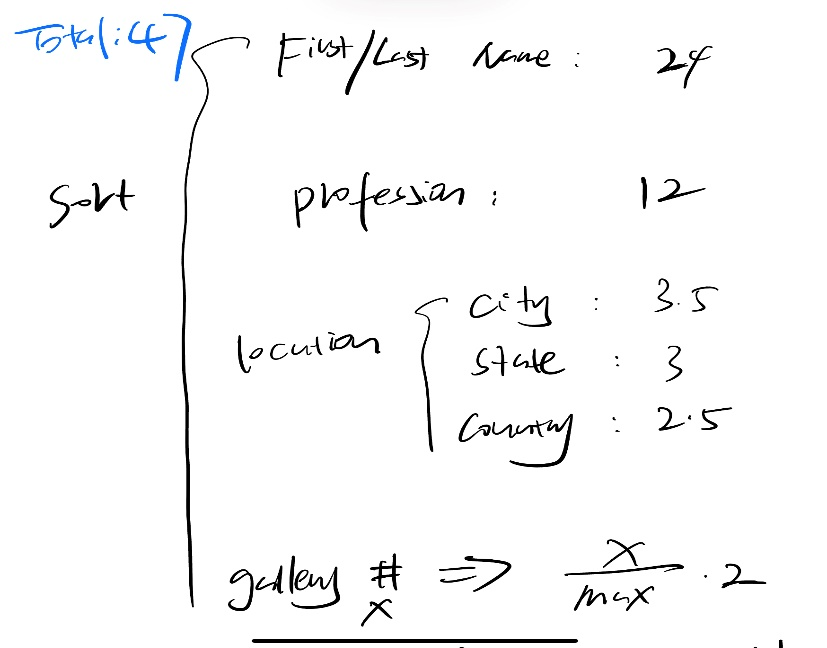 Total: 47
First/Last Name : 24
Sort
profession : 12
location
city : 3.5
state : 3
country : 2.5
gallery # x => x/max · 2